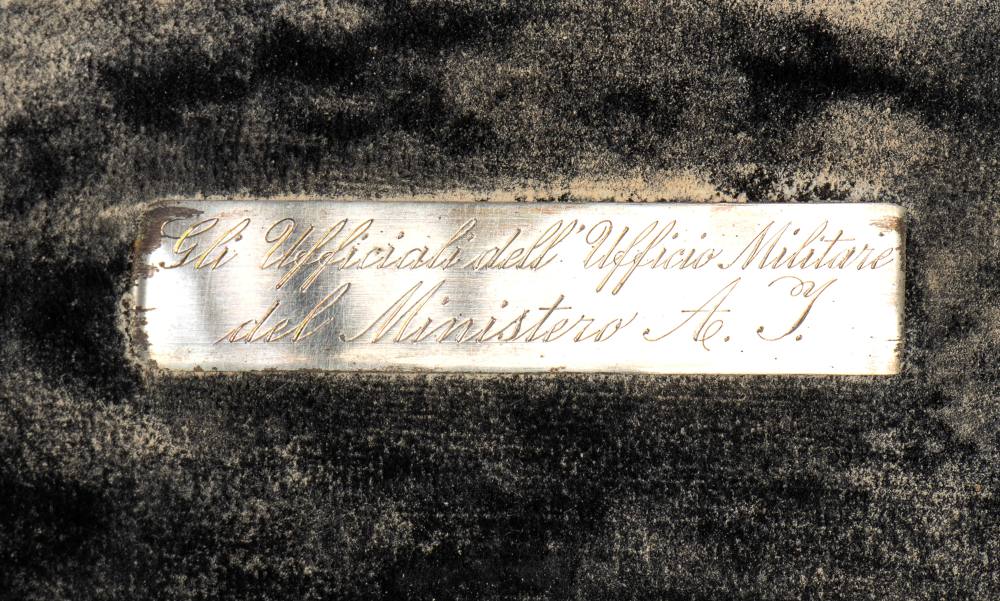 Gli Ufficiali dell' Ufficio Militare
del Ministero A. I.